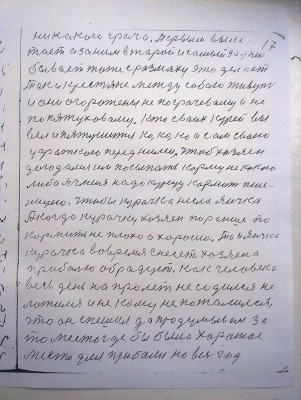 никакого грача. Первым выле-
17
тает а за ним второй и самый задний
бывает тоже с размаху это делает
Так и крестьяне между собою живут
и они огорожены не по грачевому и не
по петуховому. Кто своих курей вы
вел и петушится Ко, ко, ко а сам своею
удраткою перед ними. Чтоб хозяин
догадался им посыпать корму не како
либо ячменя надо курку кормит пше-
ницею. Чтобы курочка несла яички
А когда курочку хозяин пораньше по
кормит не плохо а хорошо. То и яичко
курочка вовремя снесет хозяина
прибалью обрадует. Как человека
весь день на пролет не садился не
ложился и не кому не пожалился,
что он спешил да продумывал за
то место где бы было хорошее
место для прибали на весь год